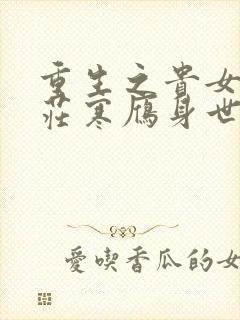 重生之貴女
莊寒雁身世
愛喫香瓜的女